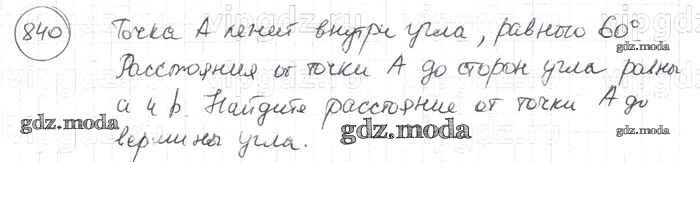 840 Точка А лежит внутри угла, равного 60°
Расстояния от точки А до сторон угла равны
а и b. Найдите расстояние от точки А до
вершины угла.
gdz.moda
gdz.moda
gdz.moda
gdz.moda
gdz.moda